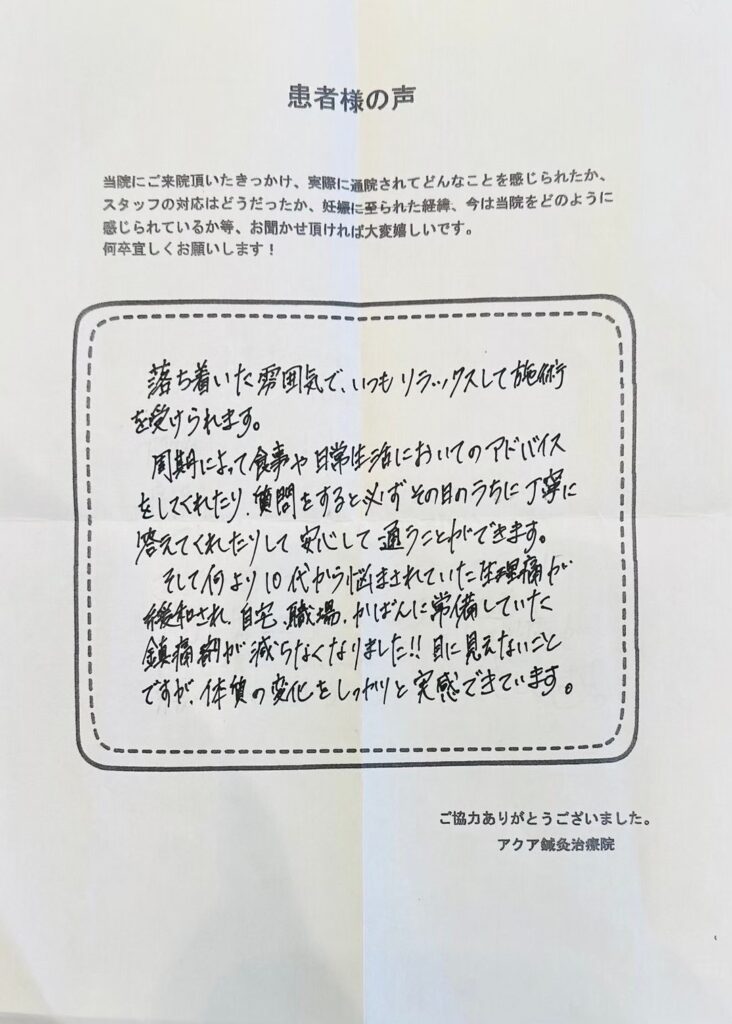 患者様の声
当院にご来院頂いたきっかけ、実際に通院されてどんなことを感じられたか、
スタッフの対応はどうだったか、妊娠に至られた経緯、今は当院をどのように
感じられているか等、お聞かせ頂ければ大変嬉しいです。
何卒宜しくお願いします！
落ち着いた雰囲気で、いつもリラックスして施術
を受けられます。
周期によって食事や日常生活においてのアドバイス
をしてくれたり、質問をすると必ずその日のうちに丁寧に
答えてくれたりして安心して通うことができます。
そして何より10代から悩まされていた生理痛が
緩和され、自宅、職場、かばんに常備していた
鎮痛剤が減らなくなりました!! 目に見えないこと
ですが、体質の変化をしっかりと実感できています。
ご協力ありがとうございました。
アクア鍼灸治療院